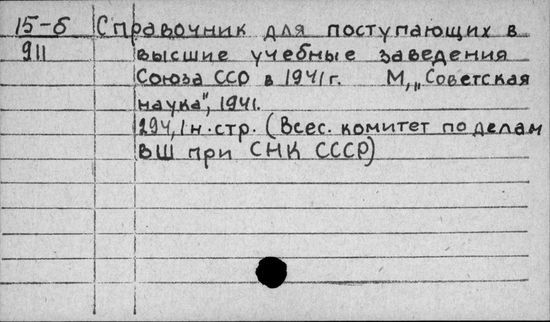 15-б Справочник для поступающих в
911 высшие учебные заведения
Союза ССР в 1941 г. М, „Советская
наука", 1941.
294, 1 н. стр. (Всес. комитет по делам
ВШ при СНК СССР)